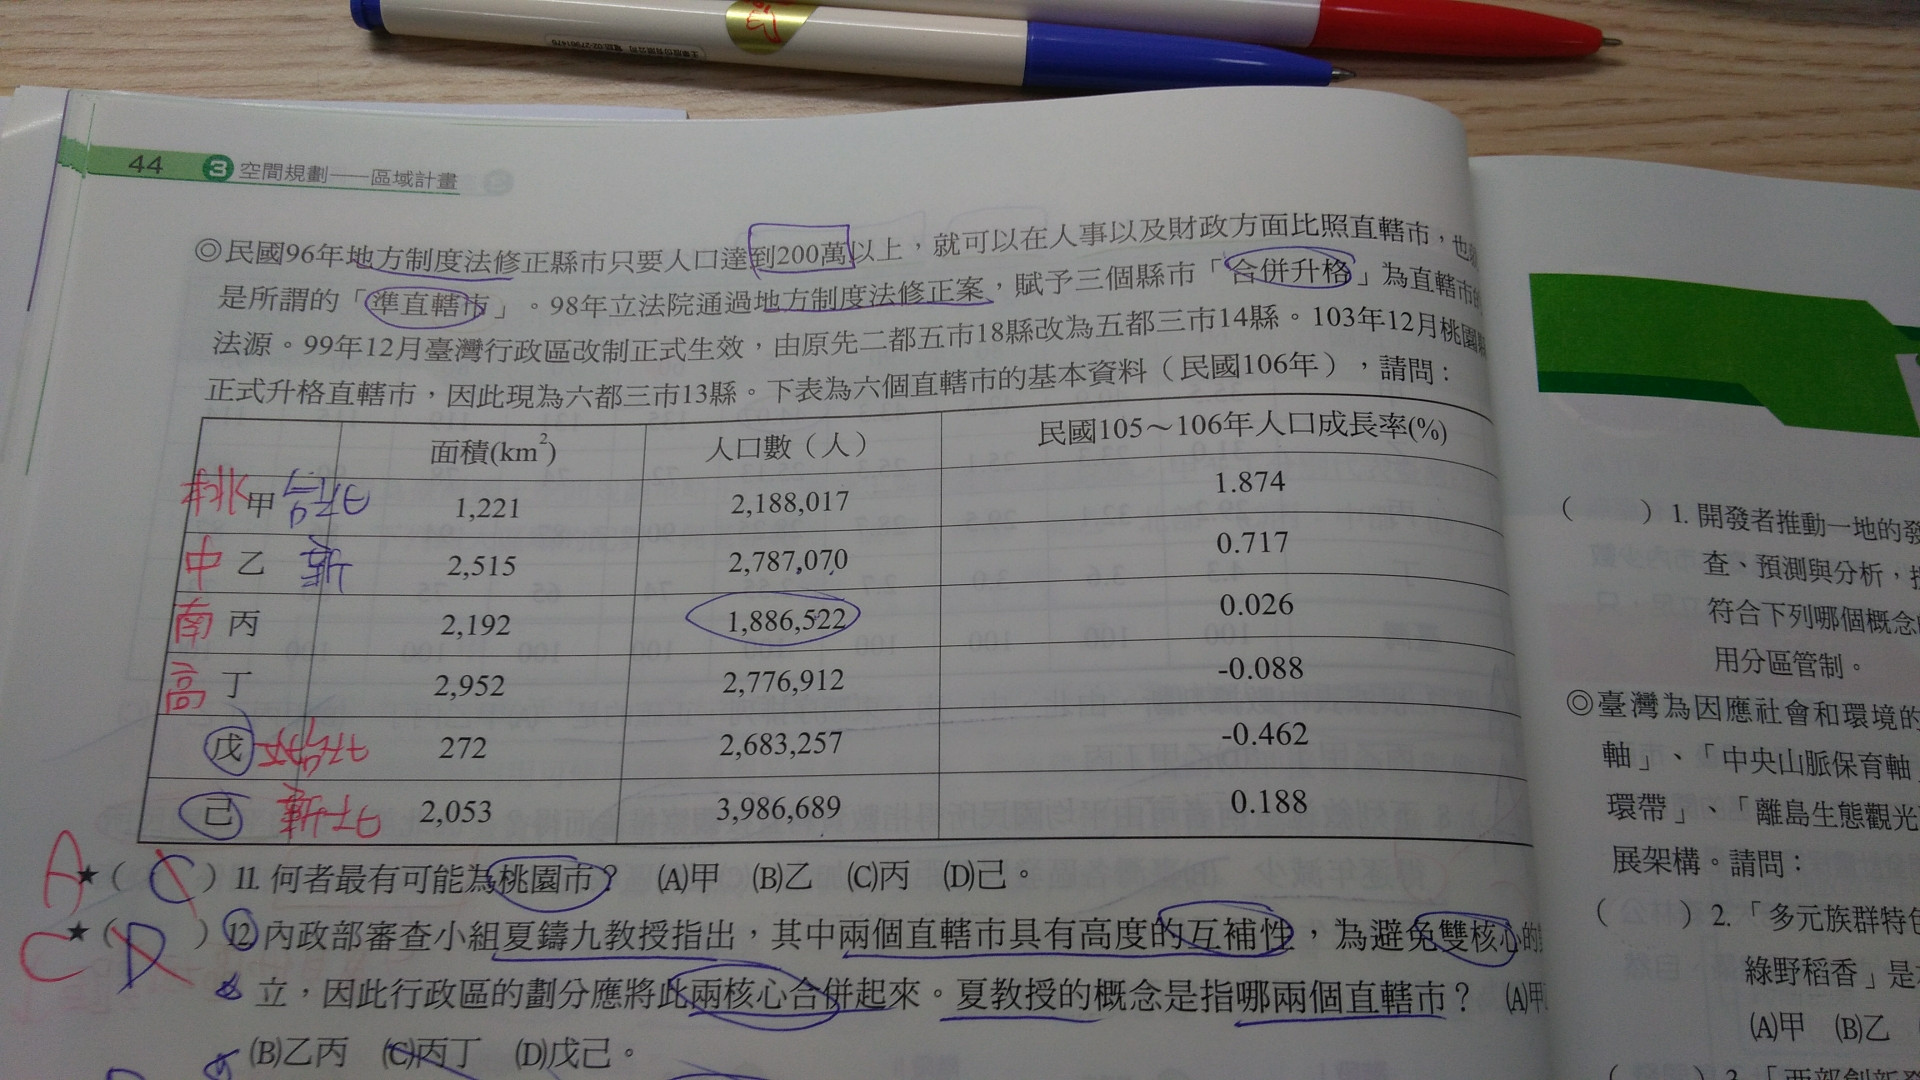 44 3 空間規劃——區域計畫
◎民國96年地方制度法修正縣市只要人口達到200萬以上，就可以在人事以及財政方面比照直轄市，也
是所謂的「準直轄市」。98年立法院通過地方制度法修正案，賦予三個縣市「合併升格」為直轄市的
法源。99年12月臺灣行政區改制正式生效，由原先二都五市18縣改為五都三市14縣。103年12月桃園
正式升格直轄市，因此現為六都三市13縣。下表為六個直轄市的基本資料（民國106年），請問：
面積(km²) 人口數（人） 民國105～106年人口成長率(%)
桃 甲 1,221 2,188,017 1.874
中 乙 新 2,515 2,787,070 0.717
南 丙 2,192 1,886,522 0.026
高 丁 2,952 2,776,912 -0.088
戊 272 2,683,257 -0.462
己 新北 2,053 3,986,689 0.188
A ★( C ) 11. 何者最有可能為桃園市？ (A)甲 (B)乙 (C)丙 (D)己。
C ★( D ) 12 內政部審查小組夏鑄九教授指出，其中兩個直轄市具有高度的互補性，為避免雙核心的
立，因此行政區的劃分應將此兩核心合併起來。夏教授的概念是指哪兩個直轄市？ (A)甲
(B)乙丙 (C)丙丁 (D)戊己。
( ) 1. 開發者推動一地的發
查、預測與分析，
符合下列哪個概念
用分區管制。
◎臺灣為因應社會和環境的
軸」、「中央山脈保育軸
環帶」、「離島生態觀光
展架構。請問：
( ) 2. 「多元族群特色
綠野稻香」是
(A)甲 (B)乙
( ) 3. 「西部創新發